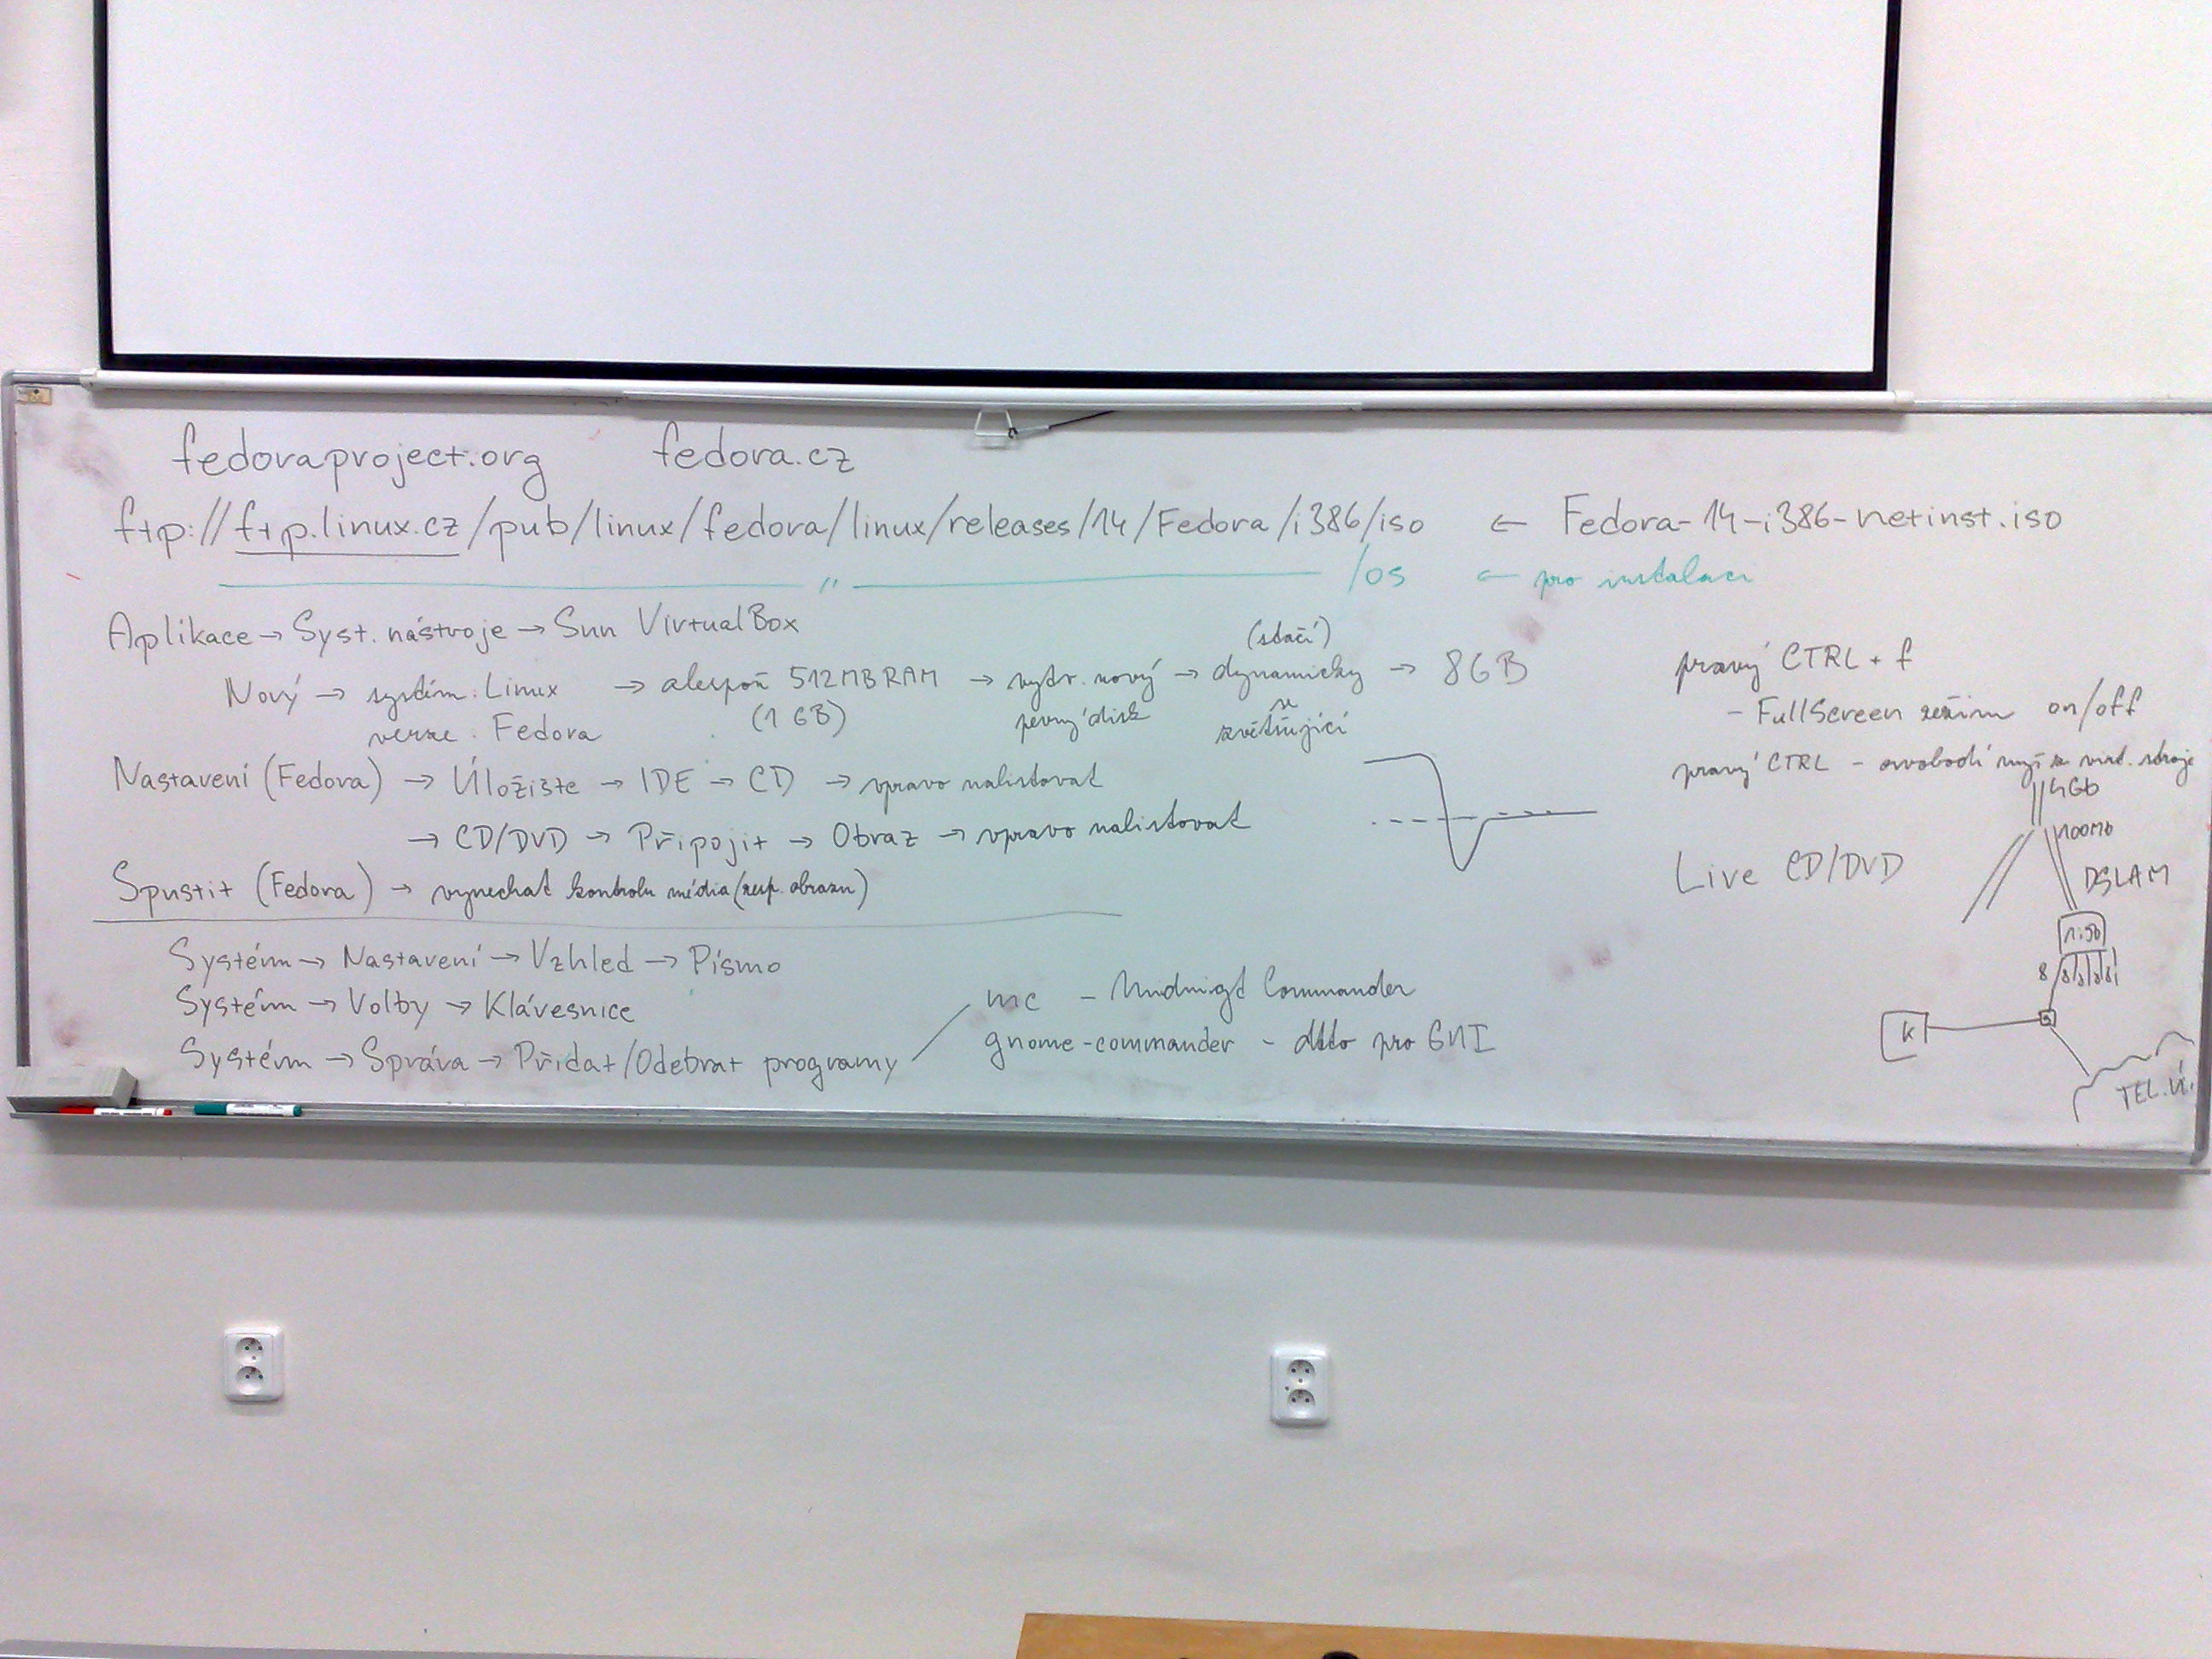 fedoraproject.org fedora.cz
ftp://ftp.linux.cz/pub/linux/fedora/linux/releases/14/Fedora/i386/iso ← Fedora-14-i386-netinst.iso
〃 /os ← pro instalaci
Aplikace → Syst. nástroje → Sun VirtualBox
(stačí)
Nový → systém: Linux → alespoň 512MB RAM → vytv. nový → dynamicky → 8GB
verze: Fedora (1 GB) pevný disk se zvětšující
Nastavení (Fedora) → Úložiště → IDE → CD → vpravo nalistovat
→ CD/DVD → Připojit → Obraz → vpravo nalistovat
Spustit (Fedora) → vynechat kontrolu média (resp. obrazu)
Systém → Nastavení → Vzhled → Písmo
Systém → Volby → Klávesnice
Systém → Správa → Přidat/Odebrat programy
mc - Midnigt Commander
gnome-commander - dtto pro GUI
pravý CTRL + f
- FullScreen režim on/off
pravý CTRL - osvobodí myš z virt. stroje
4Gb
100Mb
Live CD/DVD
DSLAM
1:50
8
K
TEL.Ú.